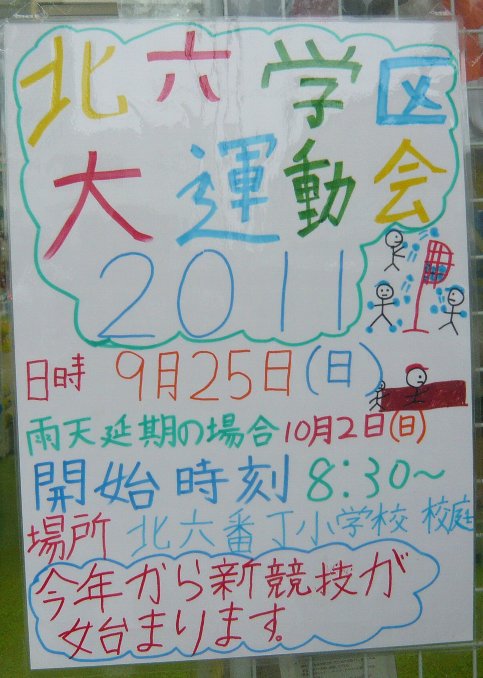 北六学区
大運動会
2011
日時 9月25日(日)
雨天延期の場合10月2日(日)
開始時刻 8:30～
場所 北六番丁小学校 校庭
今年から新競技が
始まります。